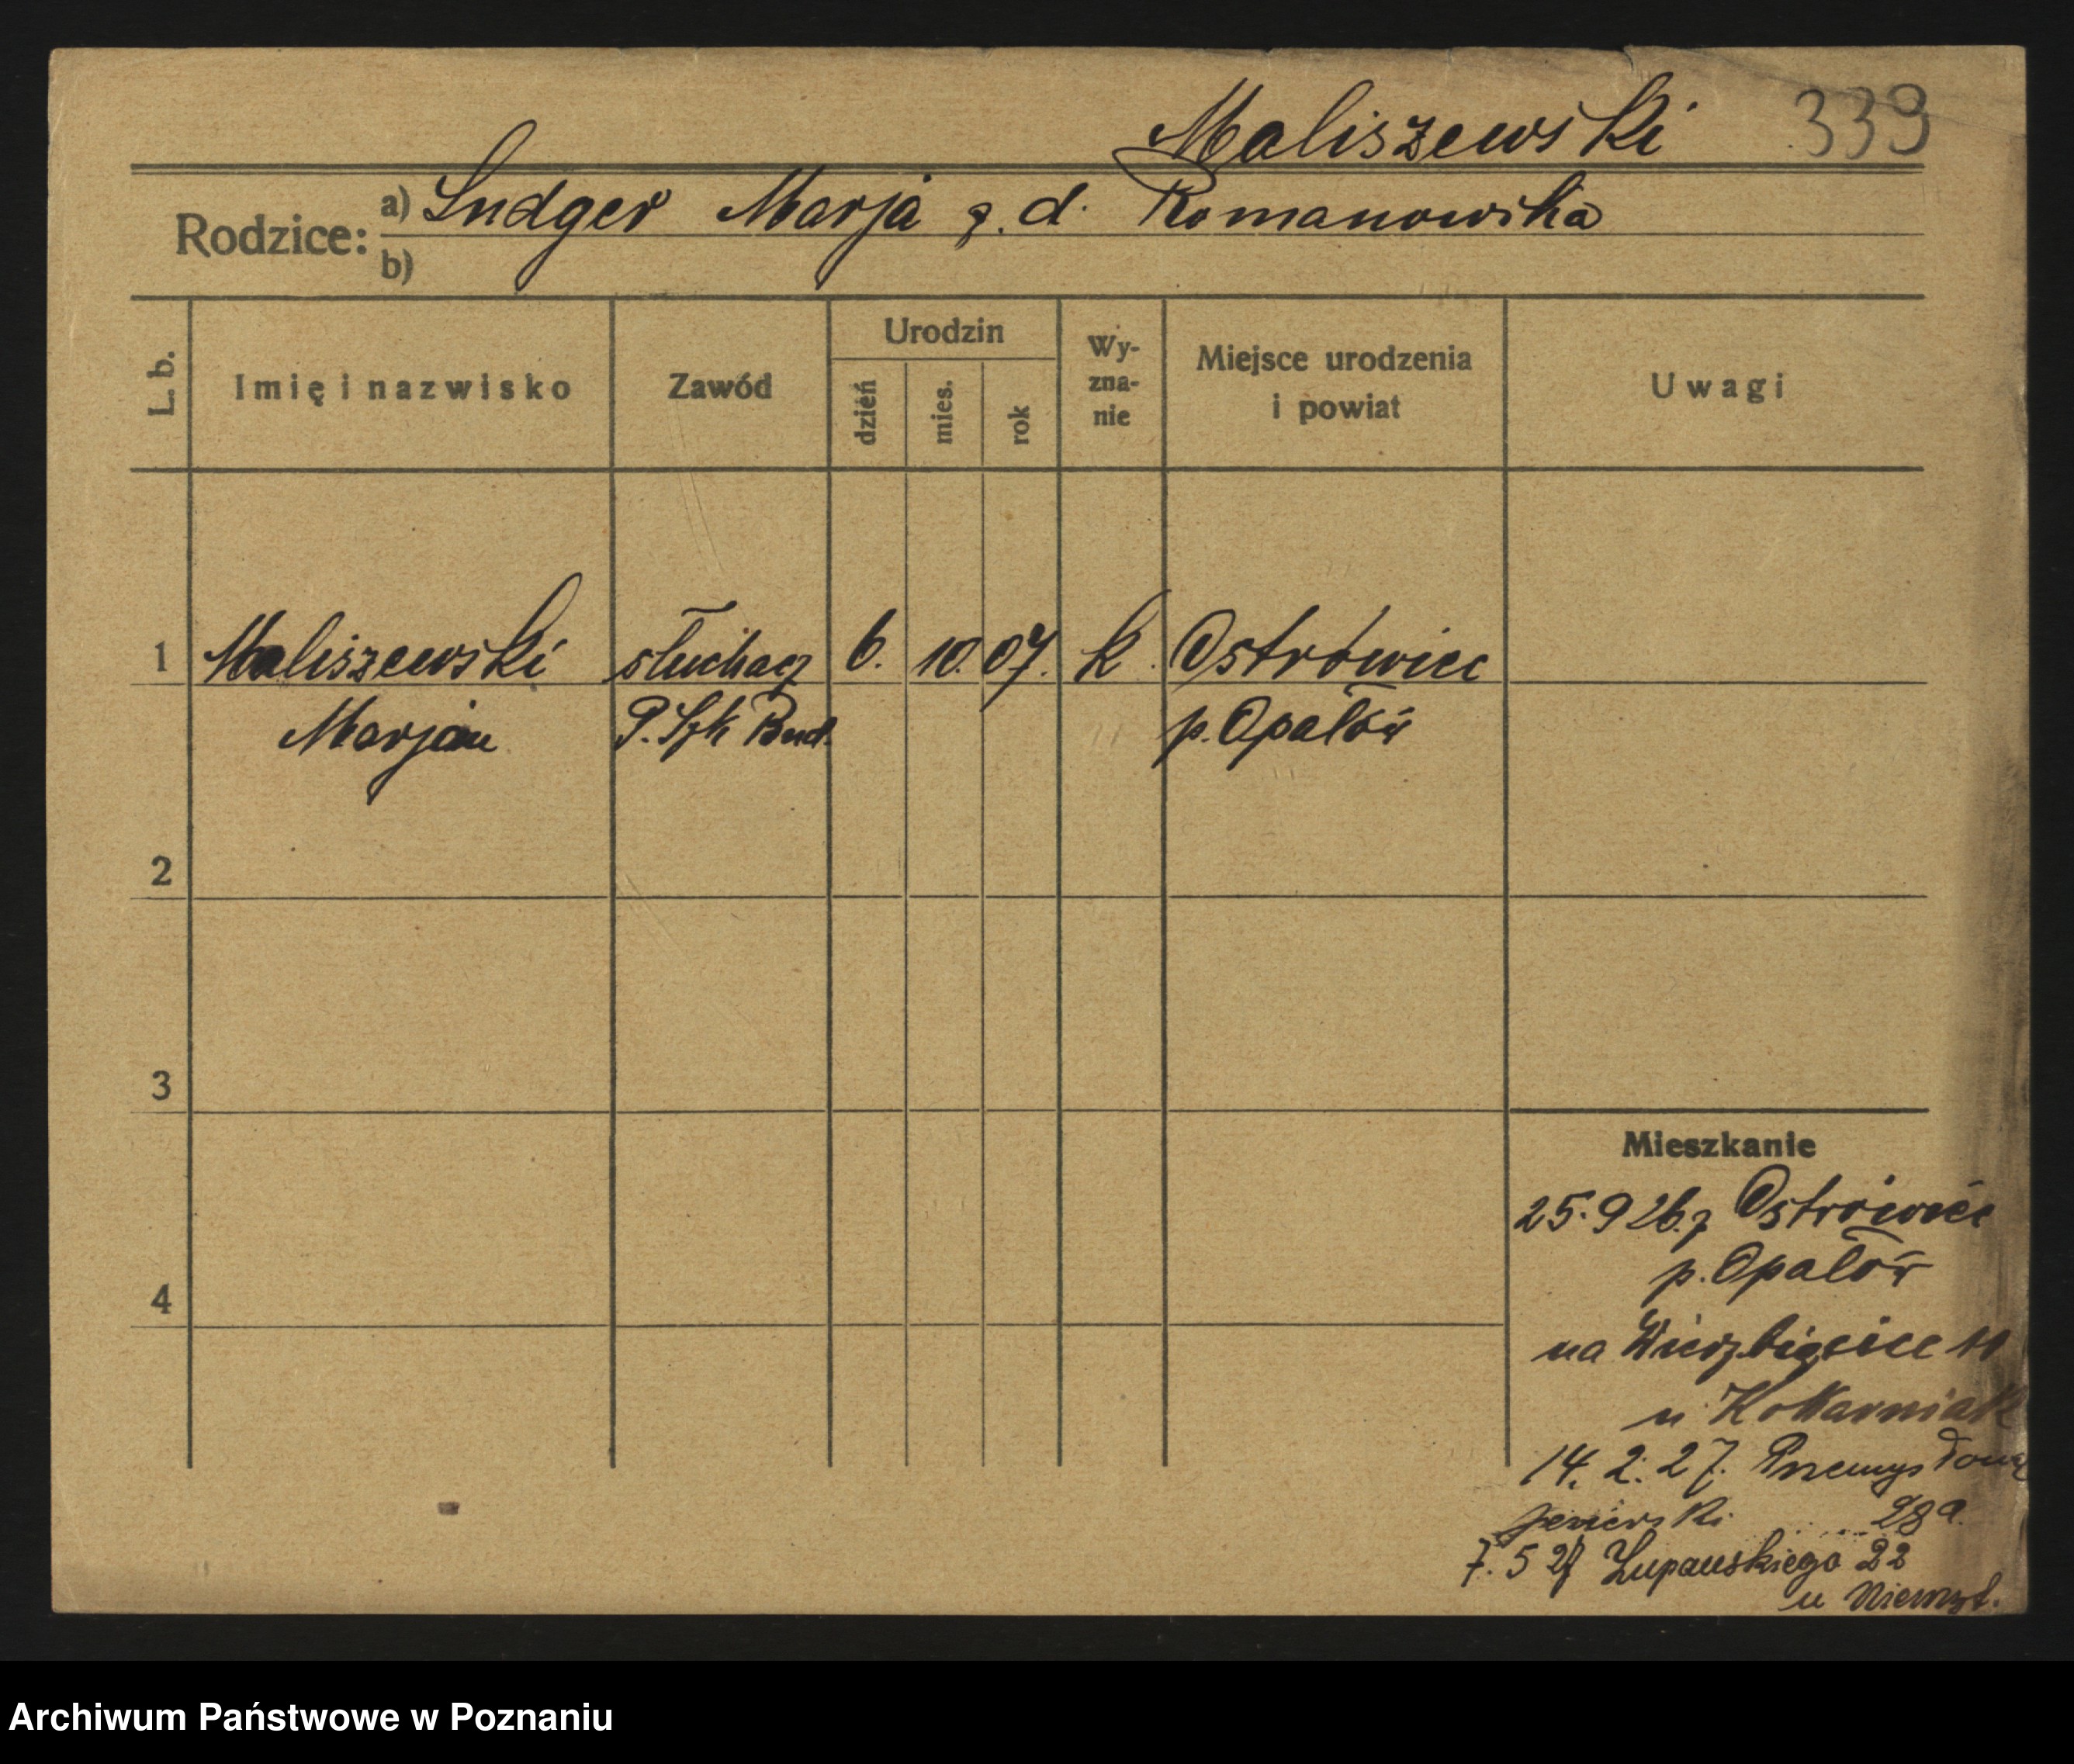 Maliszewski 339
Rodzice: a) Ludger Marja z. d. Romanowska
b)
L. b. Imię i nazwisko Zawód Urodzin dzień mies. rok Wy-zna-nie Miejsce urodzenia i powiat Uwagi
1 Maliszewski słuchacz 6. 10. 07. k. Ostrówiec
Marjan P. Szk Bud. p. Opatów
2
3
4
Mieszkanie
25.9 26. z Ostrówiec
p. Opatów
na Wierzbięcice 11
u
14. 2. 27. Przemysłowa
28a.
7. 5 27 Łupauskiego 22
u
Archiwum Państwowe w Poznaniu